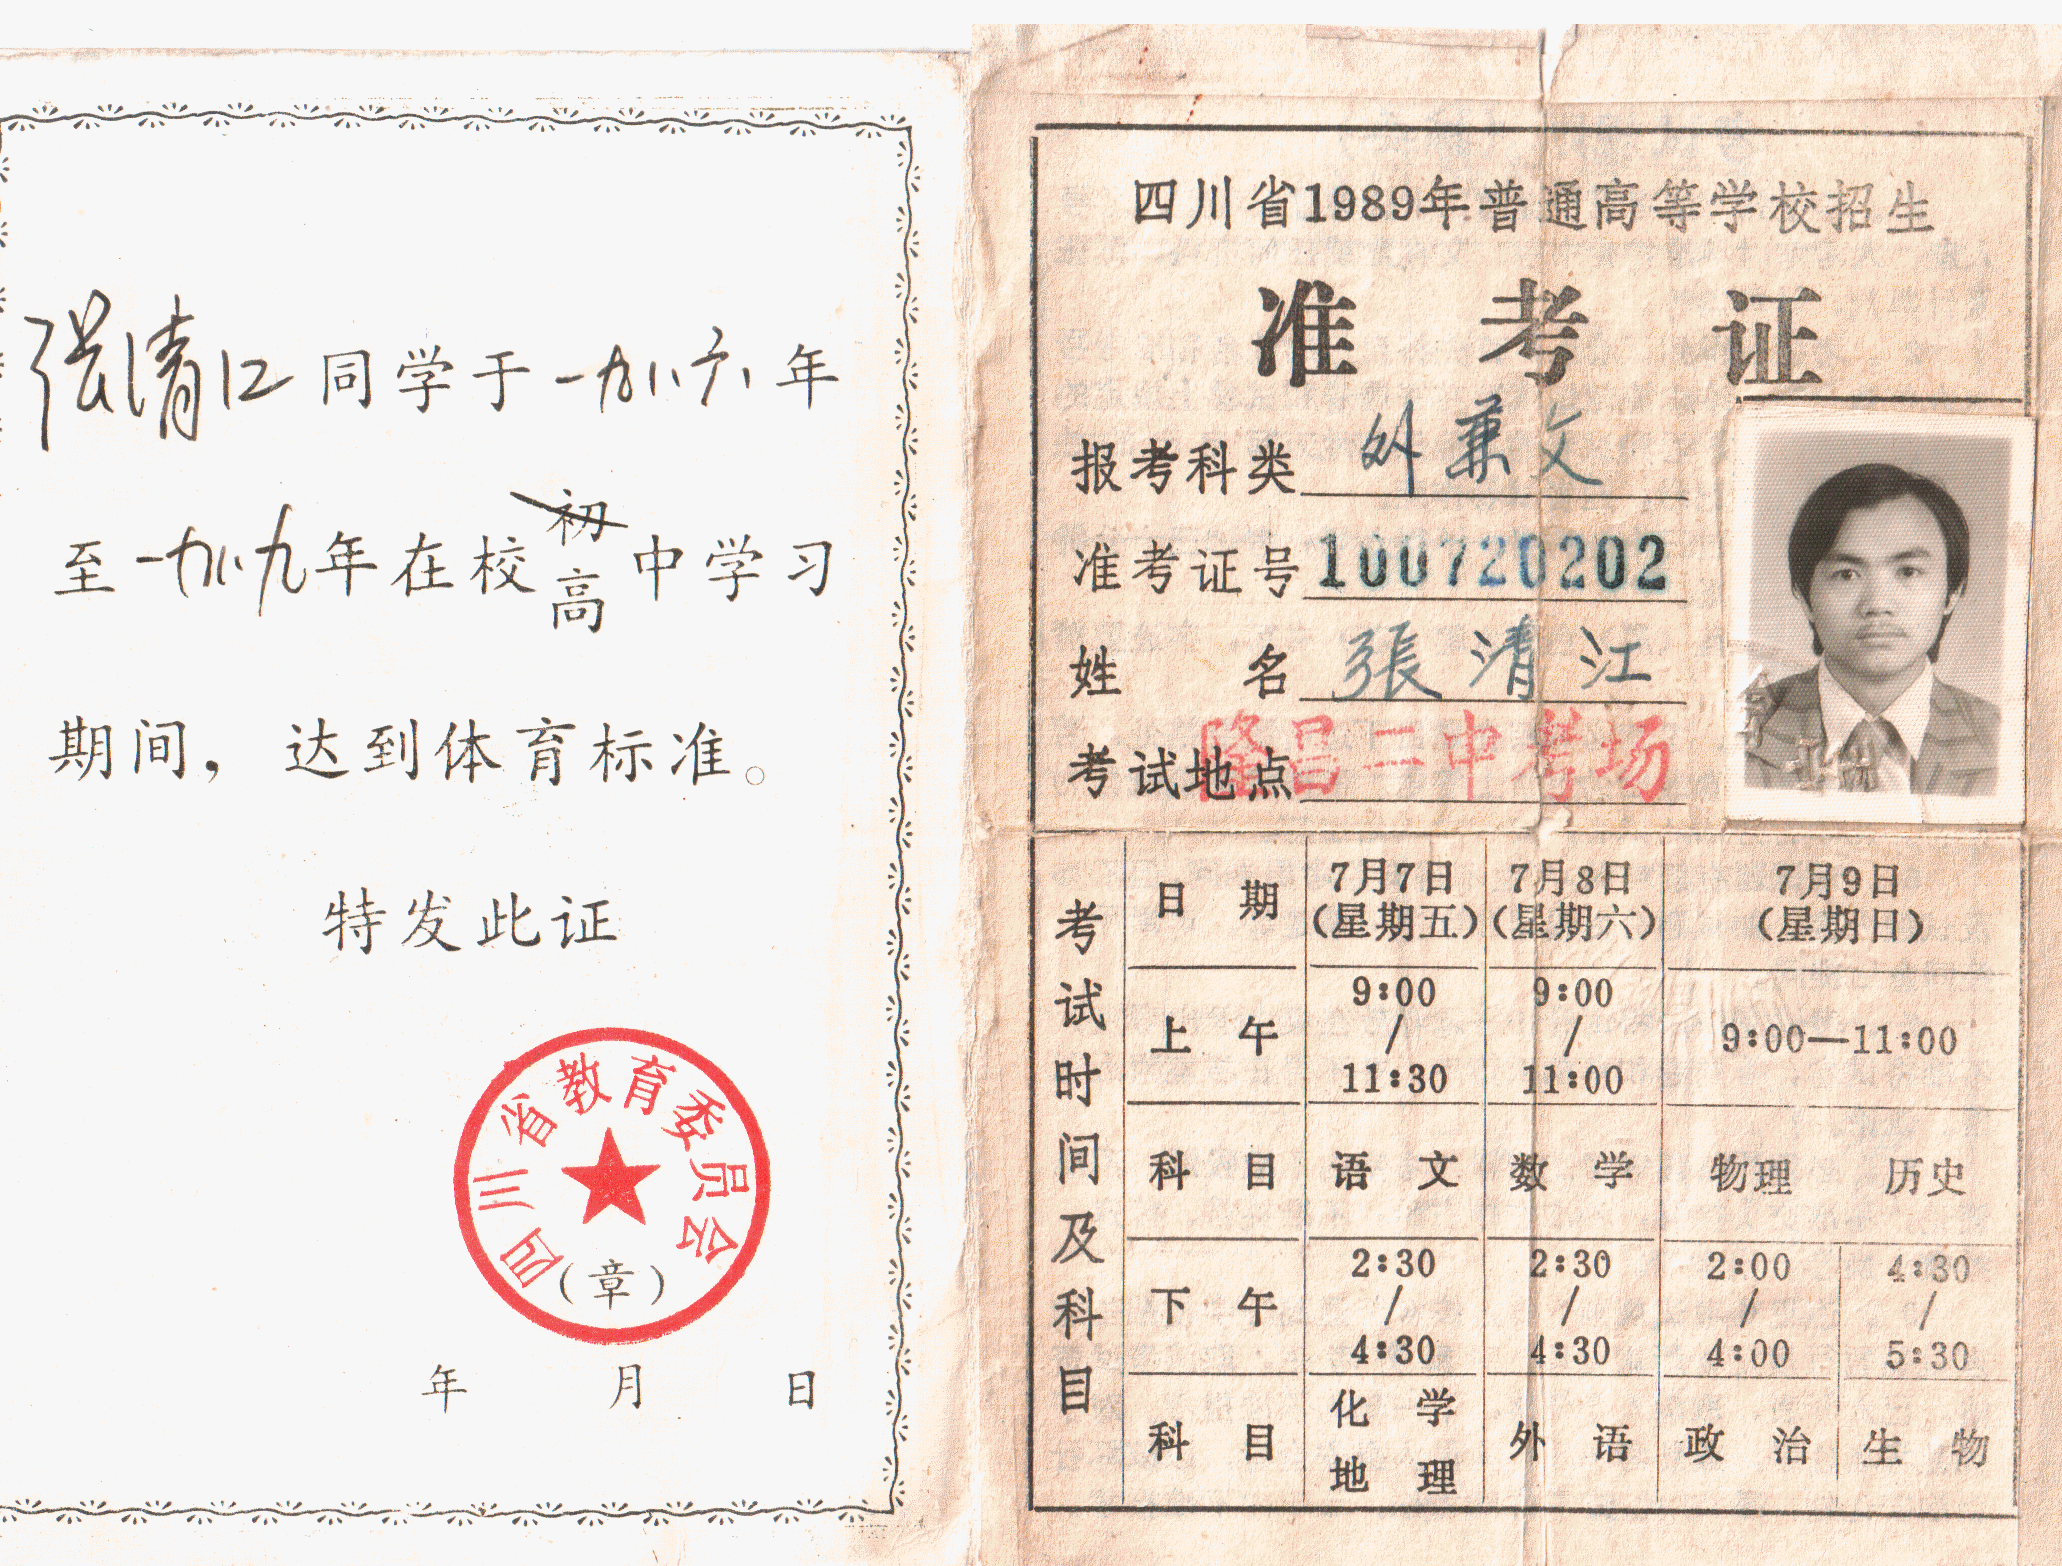 张清江同学于一九八六年
至一九八九年在校初高中学习
期间，达到体育标准。
特发此证
四川省教育委员会
（章）
年 月 日
四川省1989年普通高等学校招生
准考证
报考科类 外兼文
准考证号 100720202
姓名 張清江
考试地点 隆昌二中考场
考试时间及科目
日期 7月7日（星期五） 7月8日（星期六） 7月9日（星期日）
上午 9:00/11:30 9:00/11:00 9:00—11:00
科目 语文 数学 物理 历史
下午 2:30/4:30 2:30/4:30 2:00/4:00 4:30/5:30
科目 化学 地理 外语 政治 生物